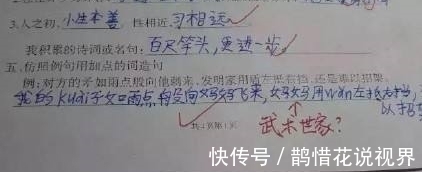 3.人之初,小生本善,性相近,习相远。
我积累的诗词或名句:百尺竿头,更进一步
五、仿照例句用加点的词造句
例:对方的矛如雨点般向他刺来,发明家用盾左抵右挡,还是难以招架。
我的kuài子女口雨点般向妈妈飞来,妈妈用wǎn左抵右挡,
以招架
共4页第1页
武术世家?
快传号/鹊惜花说视界